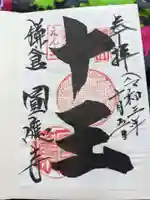 奉拝
令和三年
一月五日
十王
鎌倉
圓應寺